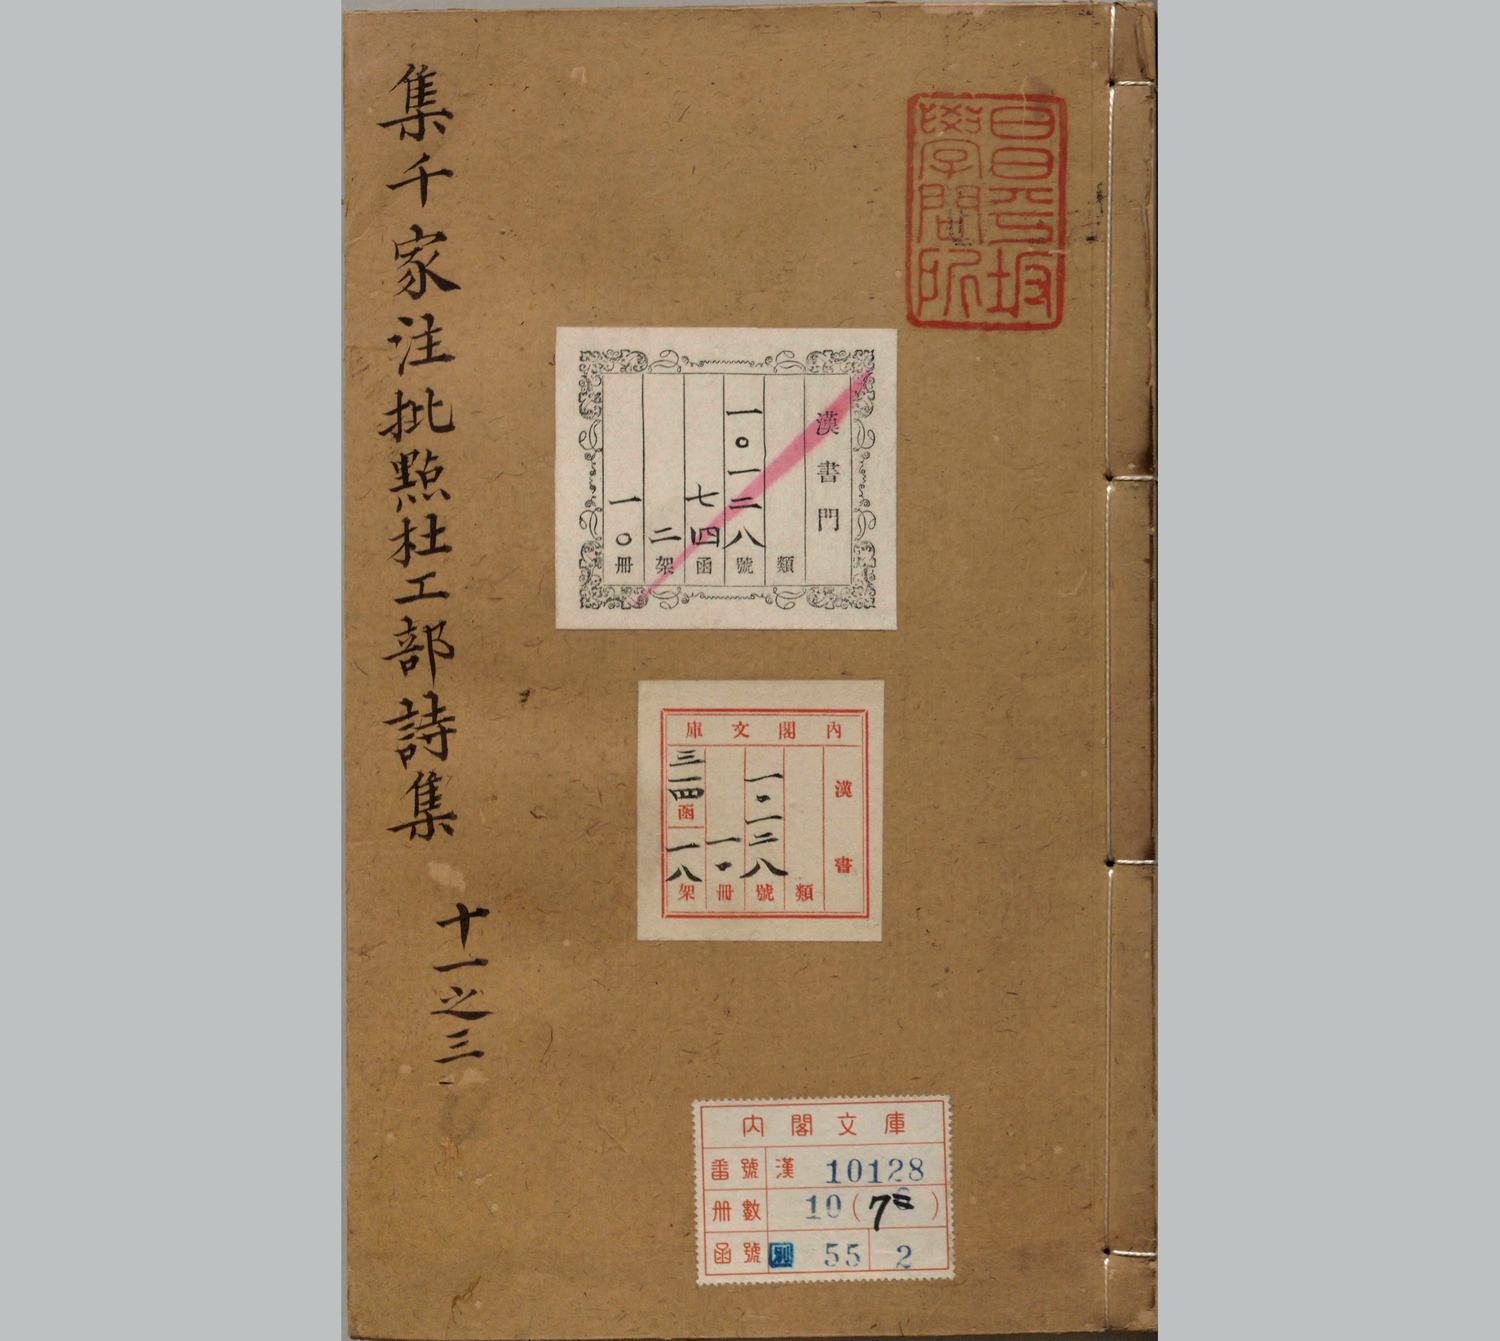 集千家注批點杜工部詩集
十一之三
昌平坂
學問所
漢書門
類
一〇一二八號
七四函
二架
一〇冊
內閣文庫
漢書
類
一〇一二八號
一〇冊
三一四函
一八架
內閣文庫
番號 漢 10128
冊數 10 (7 )
函號 別 55 2